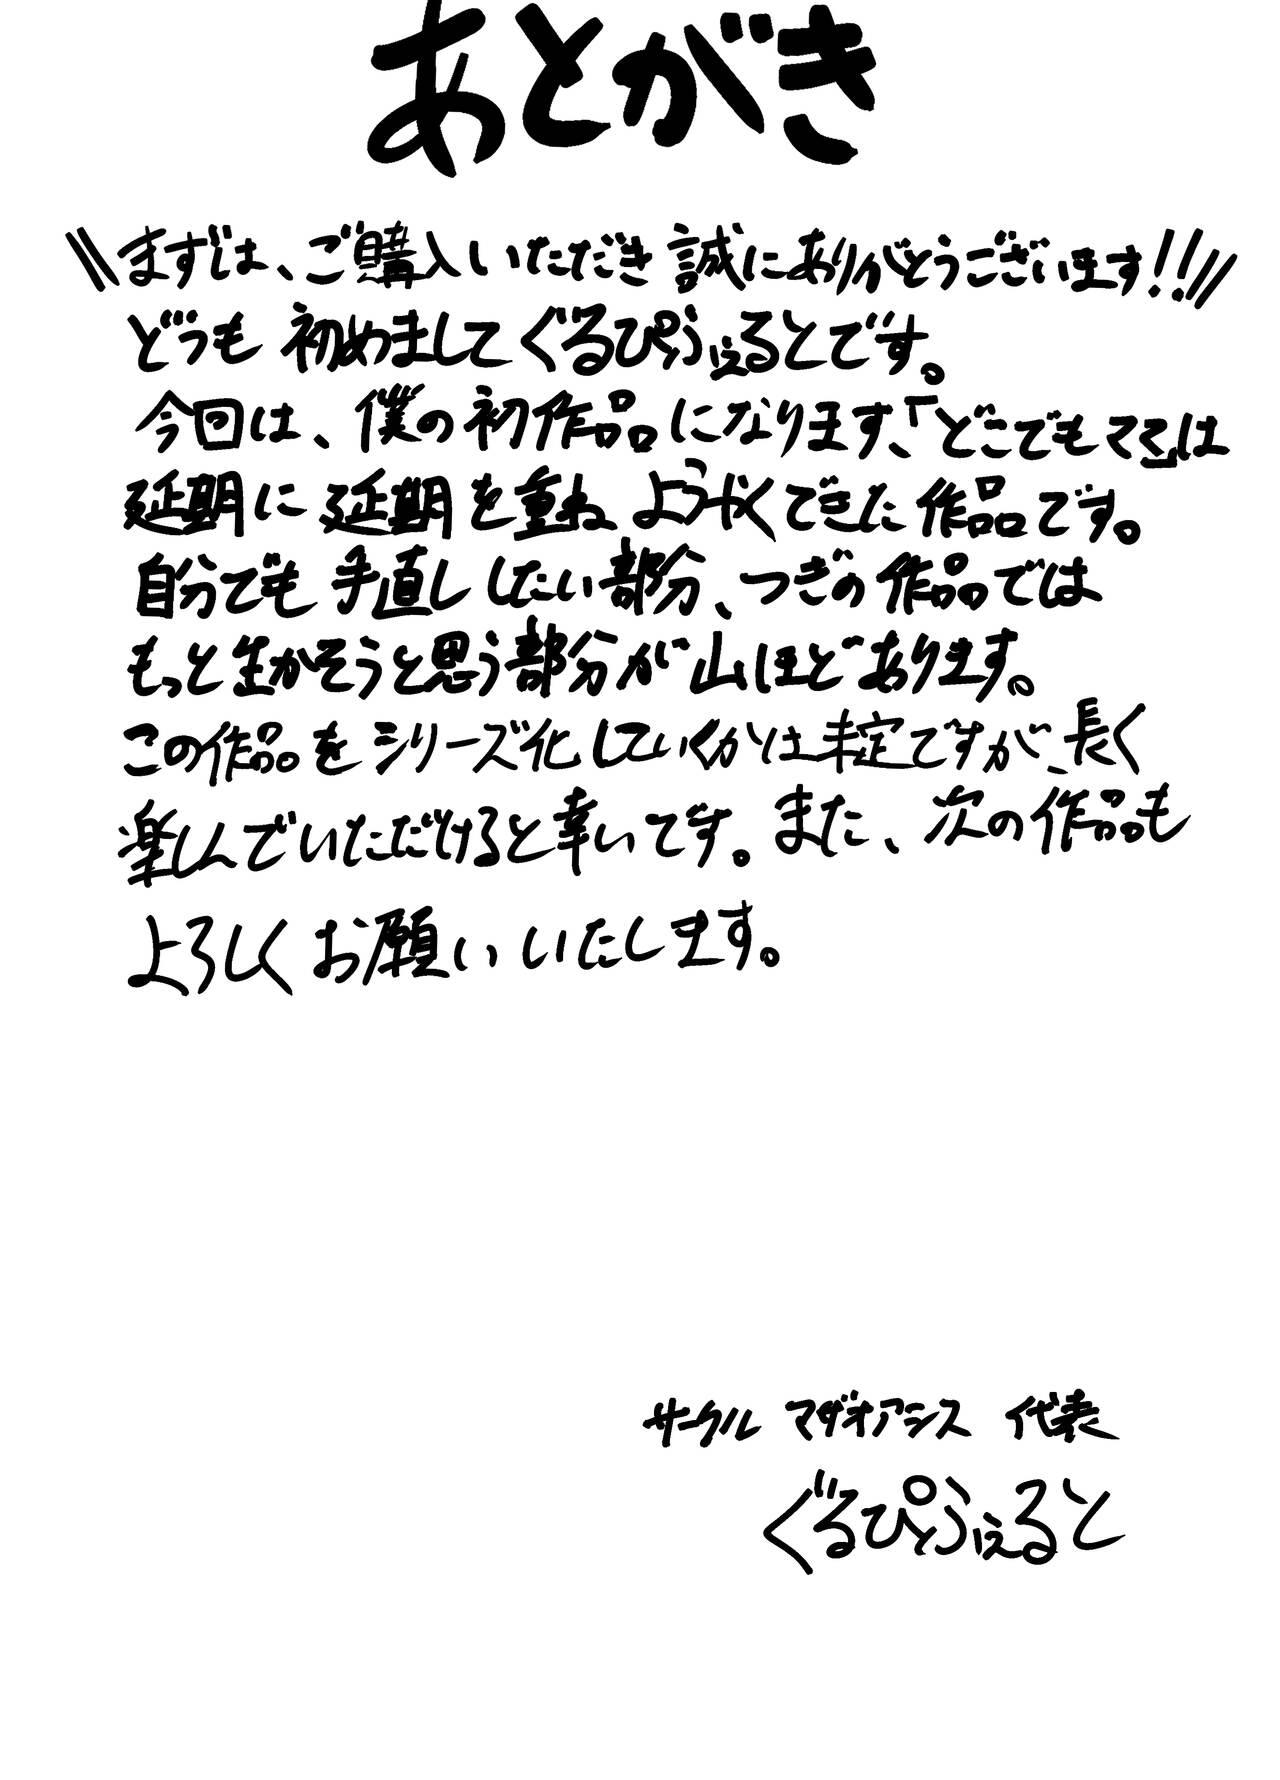 あとがき
\\まずは、ご購入いただき誠にありがとうございます!!//
どうも初めましてぐるぴふぇるとです。
今回は、僕の初作品になります、「どこでもママ」は
延期に延期を重ねようやくできた作品です。
自分でも手直ししたい部分、つぎの作品では
もっと生かそうと思う部分が山ほどあります。
この作品をシリーズ化していくかは未定ですが、長く
楽しんでいただけると幸いです。また、次の作品も
よろしくお願いいたします。
サークル マザオアシス 代表
ぐるぴふぇると